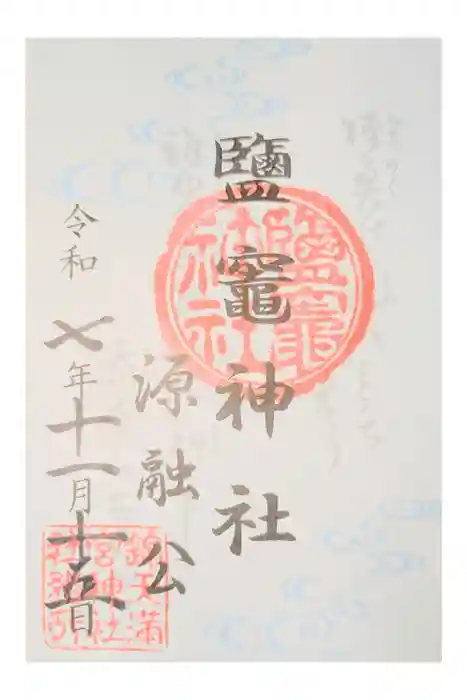 鹽竈神社
源融公
令和七年十一月十五日
鹽竈神社
錦天満宮神社之印